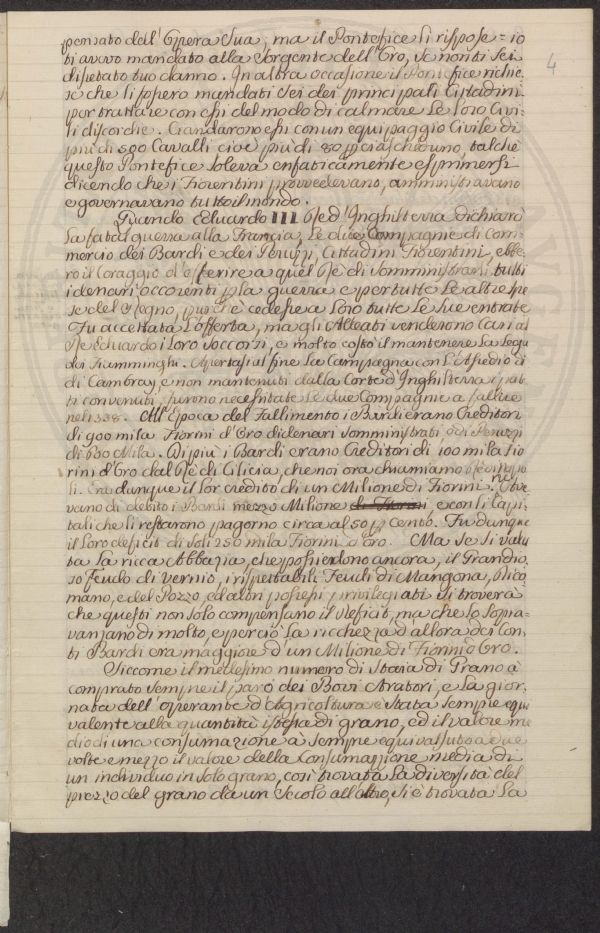 pensato dell'Opera Sua; ma il Pontefice li rispose = io
ti avevo mandato alla Sorgente dell'Oro, se non ti sei
disetato tuo danno. In altra occasione il Pontefice richie
4
se che li fossero mandati sei dei principali Cittadini
per trattare con essi del modo di calmare le loro Civi
li discordie. Ci andarono essi con un equipaggio Civile di
più di 500 Cavalli cioè più di 80 p ciascheuno, talchè
questo Pontefice soleva enfaticamente esprimersi
dicendo che i Fiorentini provvedevano, amministravano
e governavano tutto il mondo.
Quando Eduardo III Re d'Inghilterra dichiarò
la fatal guerra alla Francia, le due Compagnie di Com
mercio dei Bardi e dei Peruzzi, Cittadini Fiorentini, ebbe
ro il Coraggio d'offerire a quel Re di Somministrarli tutti
i denari occorenti p la guerra e per tutte le altre spe
se del Regno, purchè cedesse a loro tutte le sue entrate
Fu accettata l'offerta, ma gli Alleati venderono Cari al
Re Eduardo i loro Soccorsi, e molto costò il mantenere la Lega
dei Fiamminghi. Apertasi al fine la Campagna con l'Assedio
di Cambray, e non mantenuti dalla Corte d'Inghilterra i pat
ti convenuti, furono necessitate le due Compagnie a fallire
nel 1338. All'Epoca del Fallimento i Bardi erano Creditori
di 900 mila Fiorini d'Oro di denari somministrati, ed i Peruzzi
di 600 Mila. Di più i Bardi erano Creditori di 100 mila Fio
rini d'Oro dal Re di Cilicia, che noi ora chiamiamo Re di
li. Era dunque il lor credito di un Milione di Fiorini.
vano di debito i Bardi mezzo Milione di Fiorini e con li Capi
tali che li restarono pagorno circa al 50 p Cento. Fu dunque
il loro deficit di soli 250 mila Fiorini d'oro. Ma se si valu
ta la ricca Abbazia, che possiedono ancora, il Grandio
so Feudo di Vernio, i rispettabili Feudi di Mangona,
mano, e del Pozzo, ed altri possessi privilegiati si troverà
che questi non solo compensano il deficit, ma che lo Sopra
vanzano di molto, e perciò la ricchezza d'allora dei Con
ti Bardi era maggiore d'un Milione di Fiorini d'Oro.
Siccome il medesimo numero di Staia di Grano à
comprato sempre il paro dei Bovi Aratori, e la gior
nata dell'operante d'Agricoltura è stata sempre equi
valente alla quantità istessa di grano, ed il valore me
dio di una consumazione à sempre equivalsuto a due
volte e mezzo il valore della Consumazione media di
un individuo in solo grano, così trovata la diversità del
prezzo del grano da un Secolo all'altro, si è trovata la